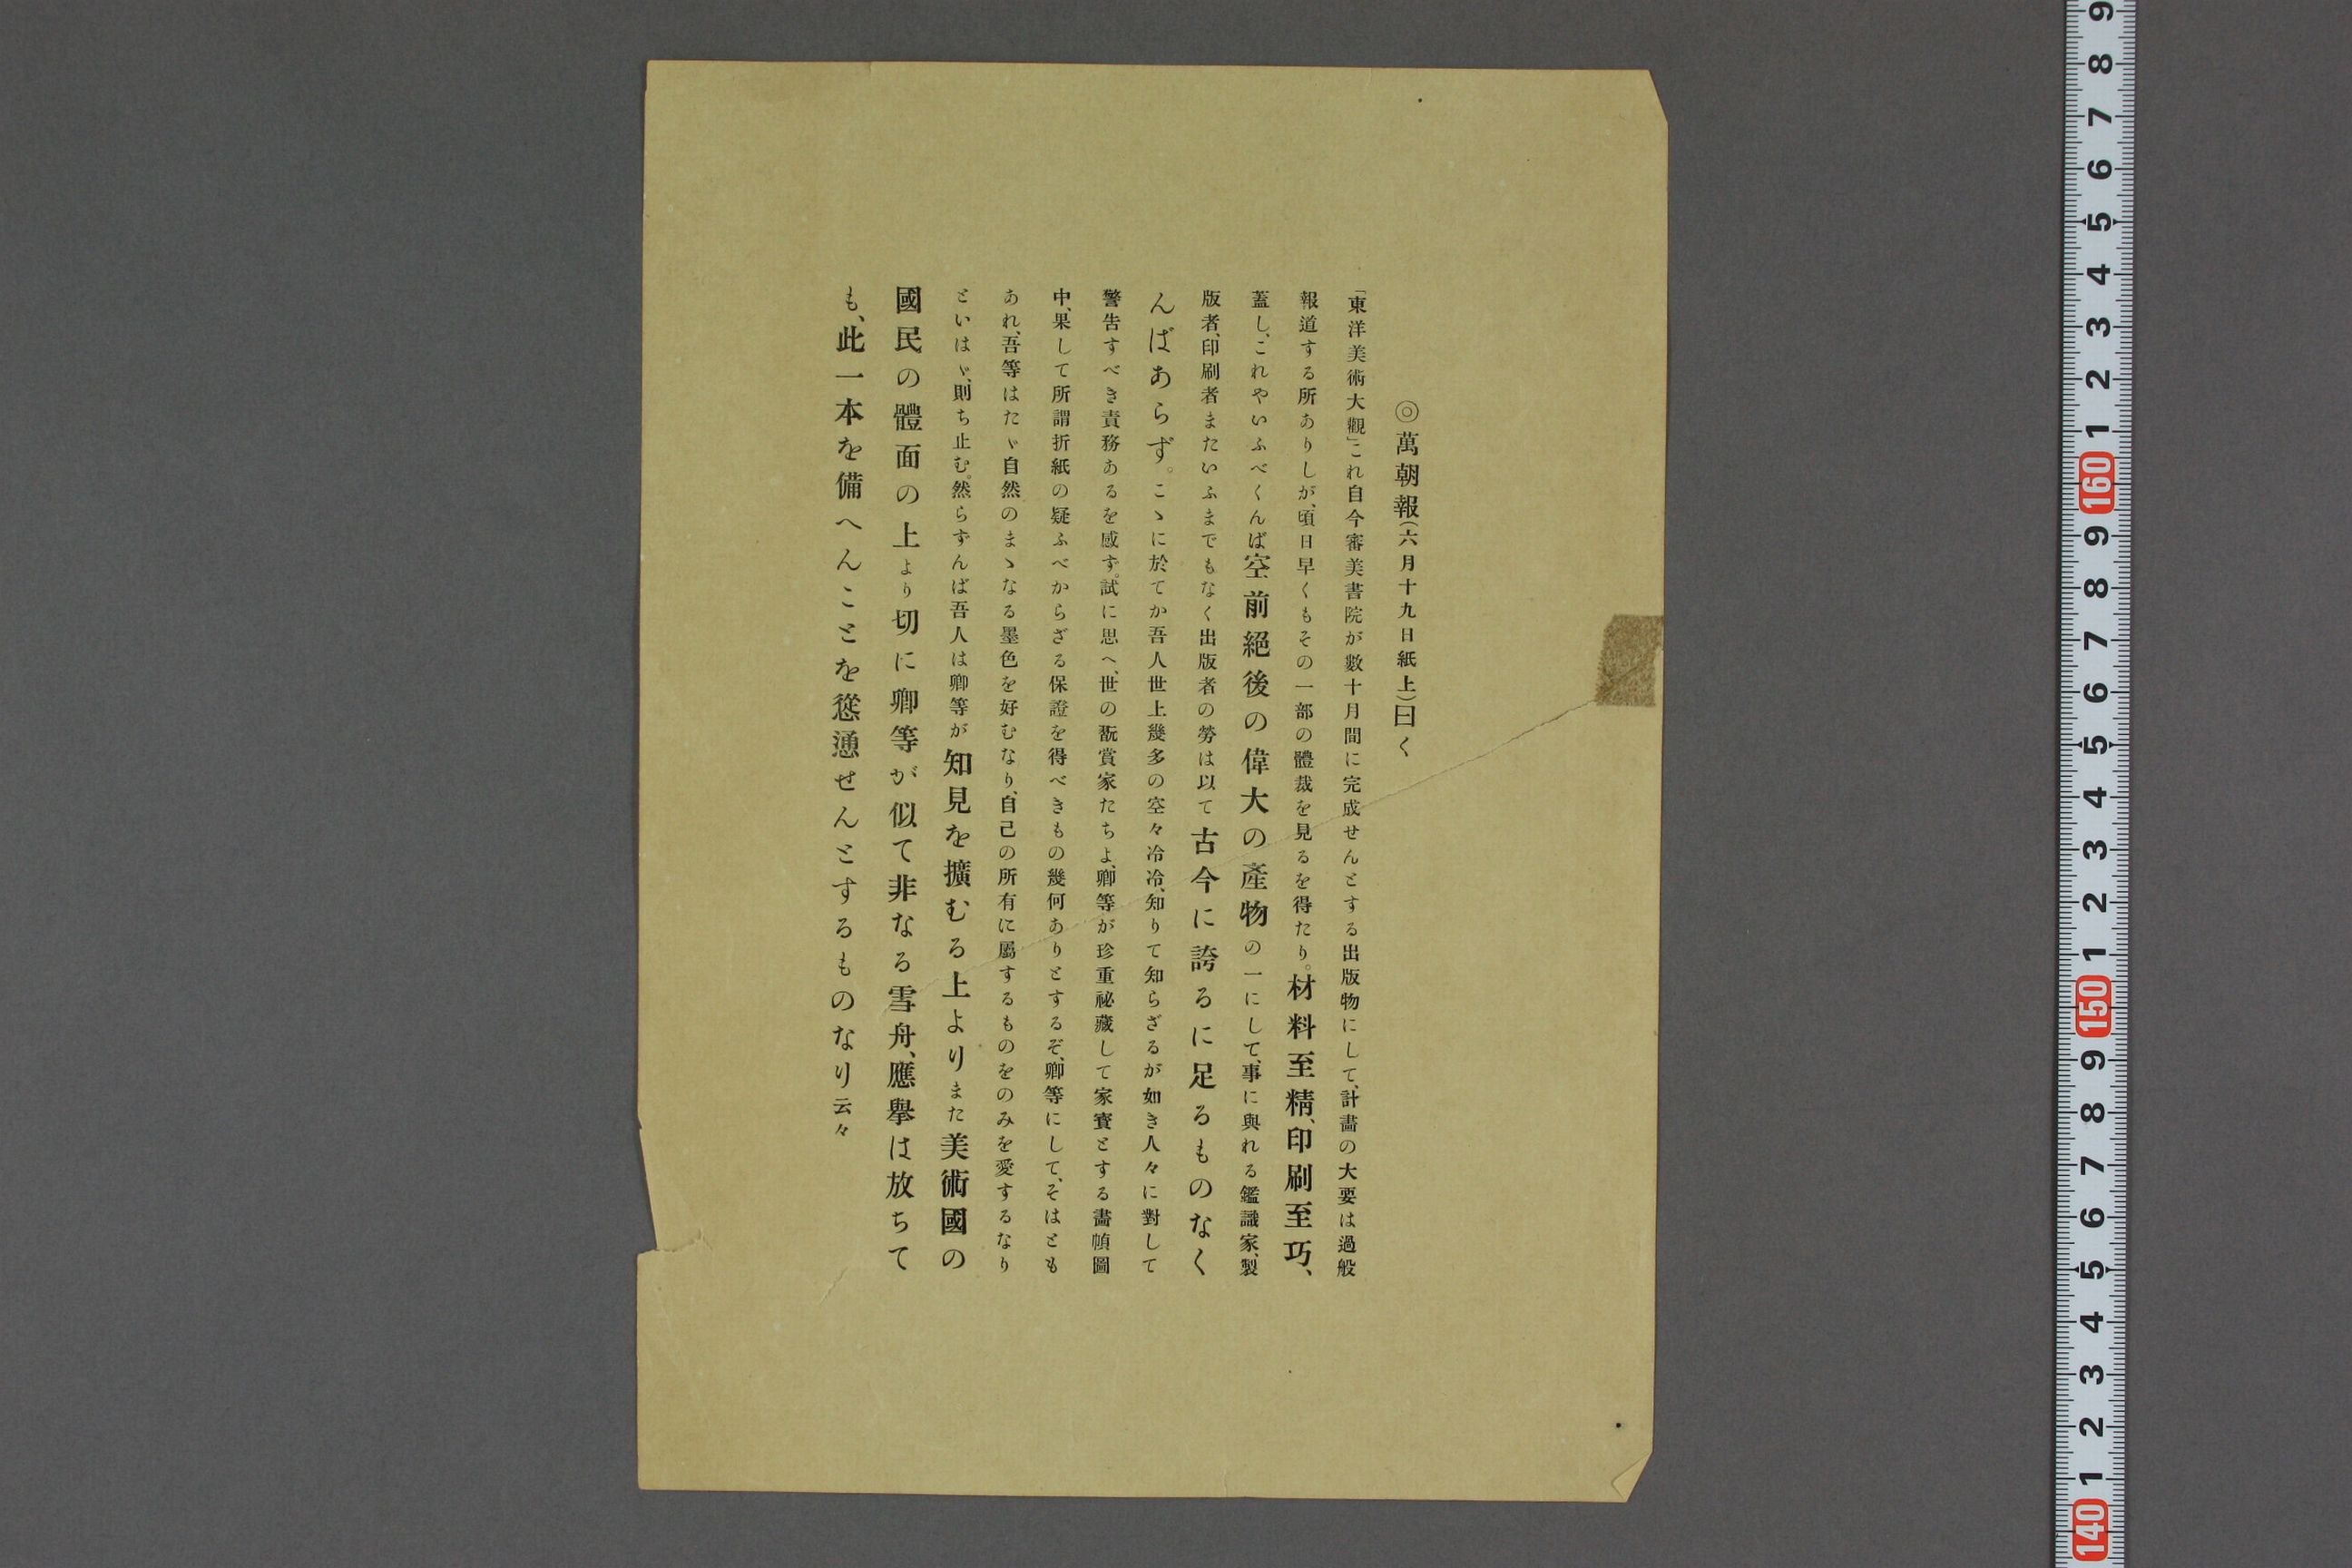 ◎萬朝報（六月十九日紙上）曰く
「東洋美術大觀」これ自今審美書院が數十月間に完成せんとする出版物にして、計畵の大要は過般
報道する所ありしが、頃日早くもその一部の體裁を見るを得たり。材料至精、印刷至巧、
蓋し、これやいふべくんば空前絕後の偉大の產物の一にして、事に與れる鑑識家、製
版者、印刷者またいふまでもなく出版者の勞は以て古今に誇るに足るものなく
んばあらず。こゝに於てか吾人世上幾多の空々冷冷、知りて知らざるが如き人々に對して
警告すべき責務あるを感ず。試に思へ、世の翫賞家たちよ、卿等が珍重祕藏して家寳とする畵幀圖
中、果して所謂折紙の疑ふべからざる保證を得べきもの幾何ありとするぞ、卿等にして、そはとも
あれ、吾等はたゞ自然のまゝなる墨色を好むなり、自己の所有に屬するものをのみを愛するなり
といはゞ、則ち止む。然らずんば吾人は卿等が知見を擴むる上よりまた美術國の
國民の體面の上より切に卿等が似て非なる雪舟、應擧は放ちて
も、此一本を備へんことを慫慂せんとするものなり云々
9
8
7
6
5
4
3
2
1
160
9
8
7
6
5
4
3
2
1
150
9
8
7
6
5
4
3
2
1
140